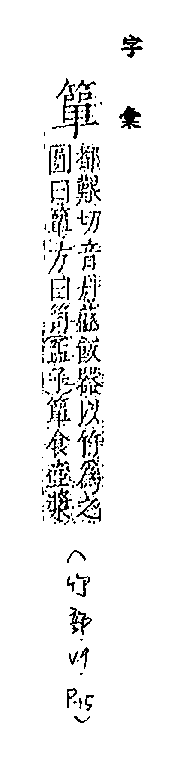 字彙
簞
都艱切音丹盛飯器以竹爲之
圓曰簞方曰笥孟子簞食壺漿
(竹部.
V.9
P.15)